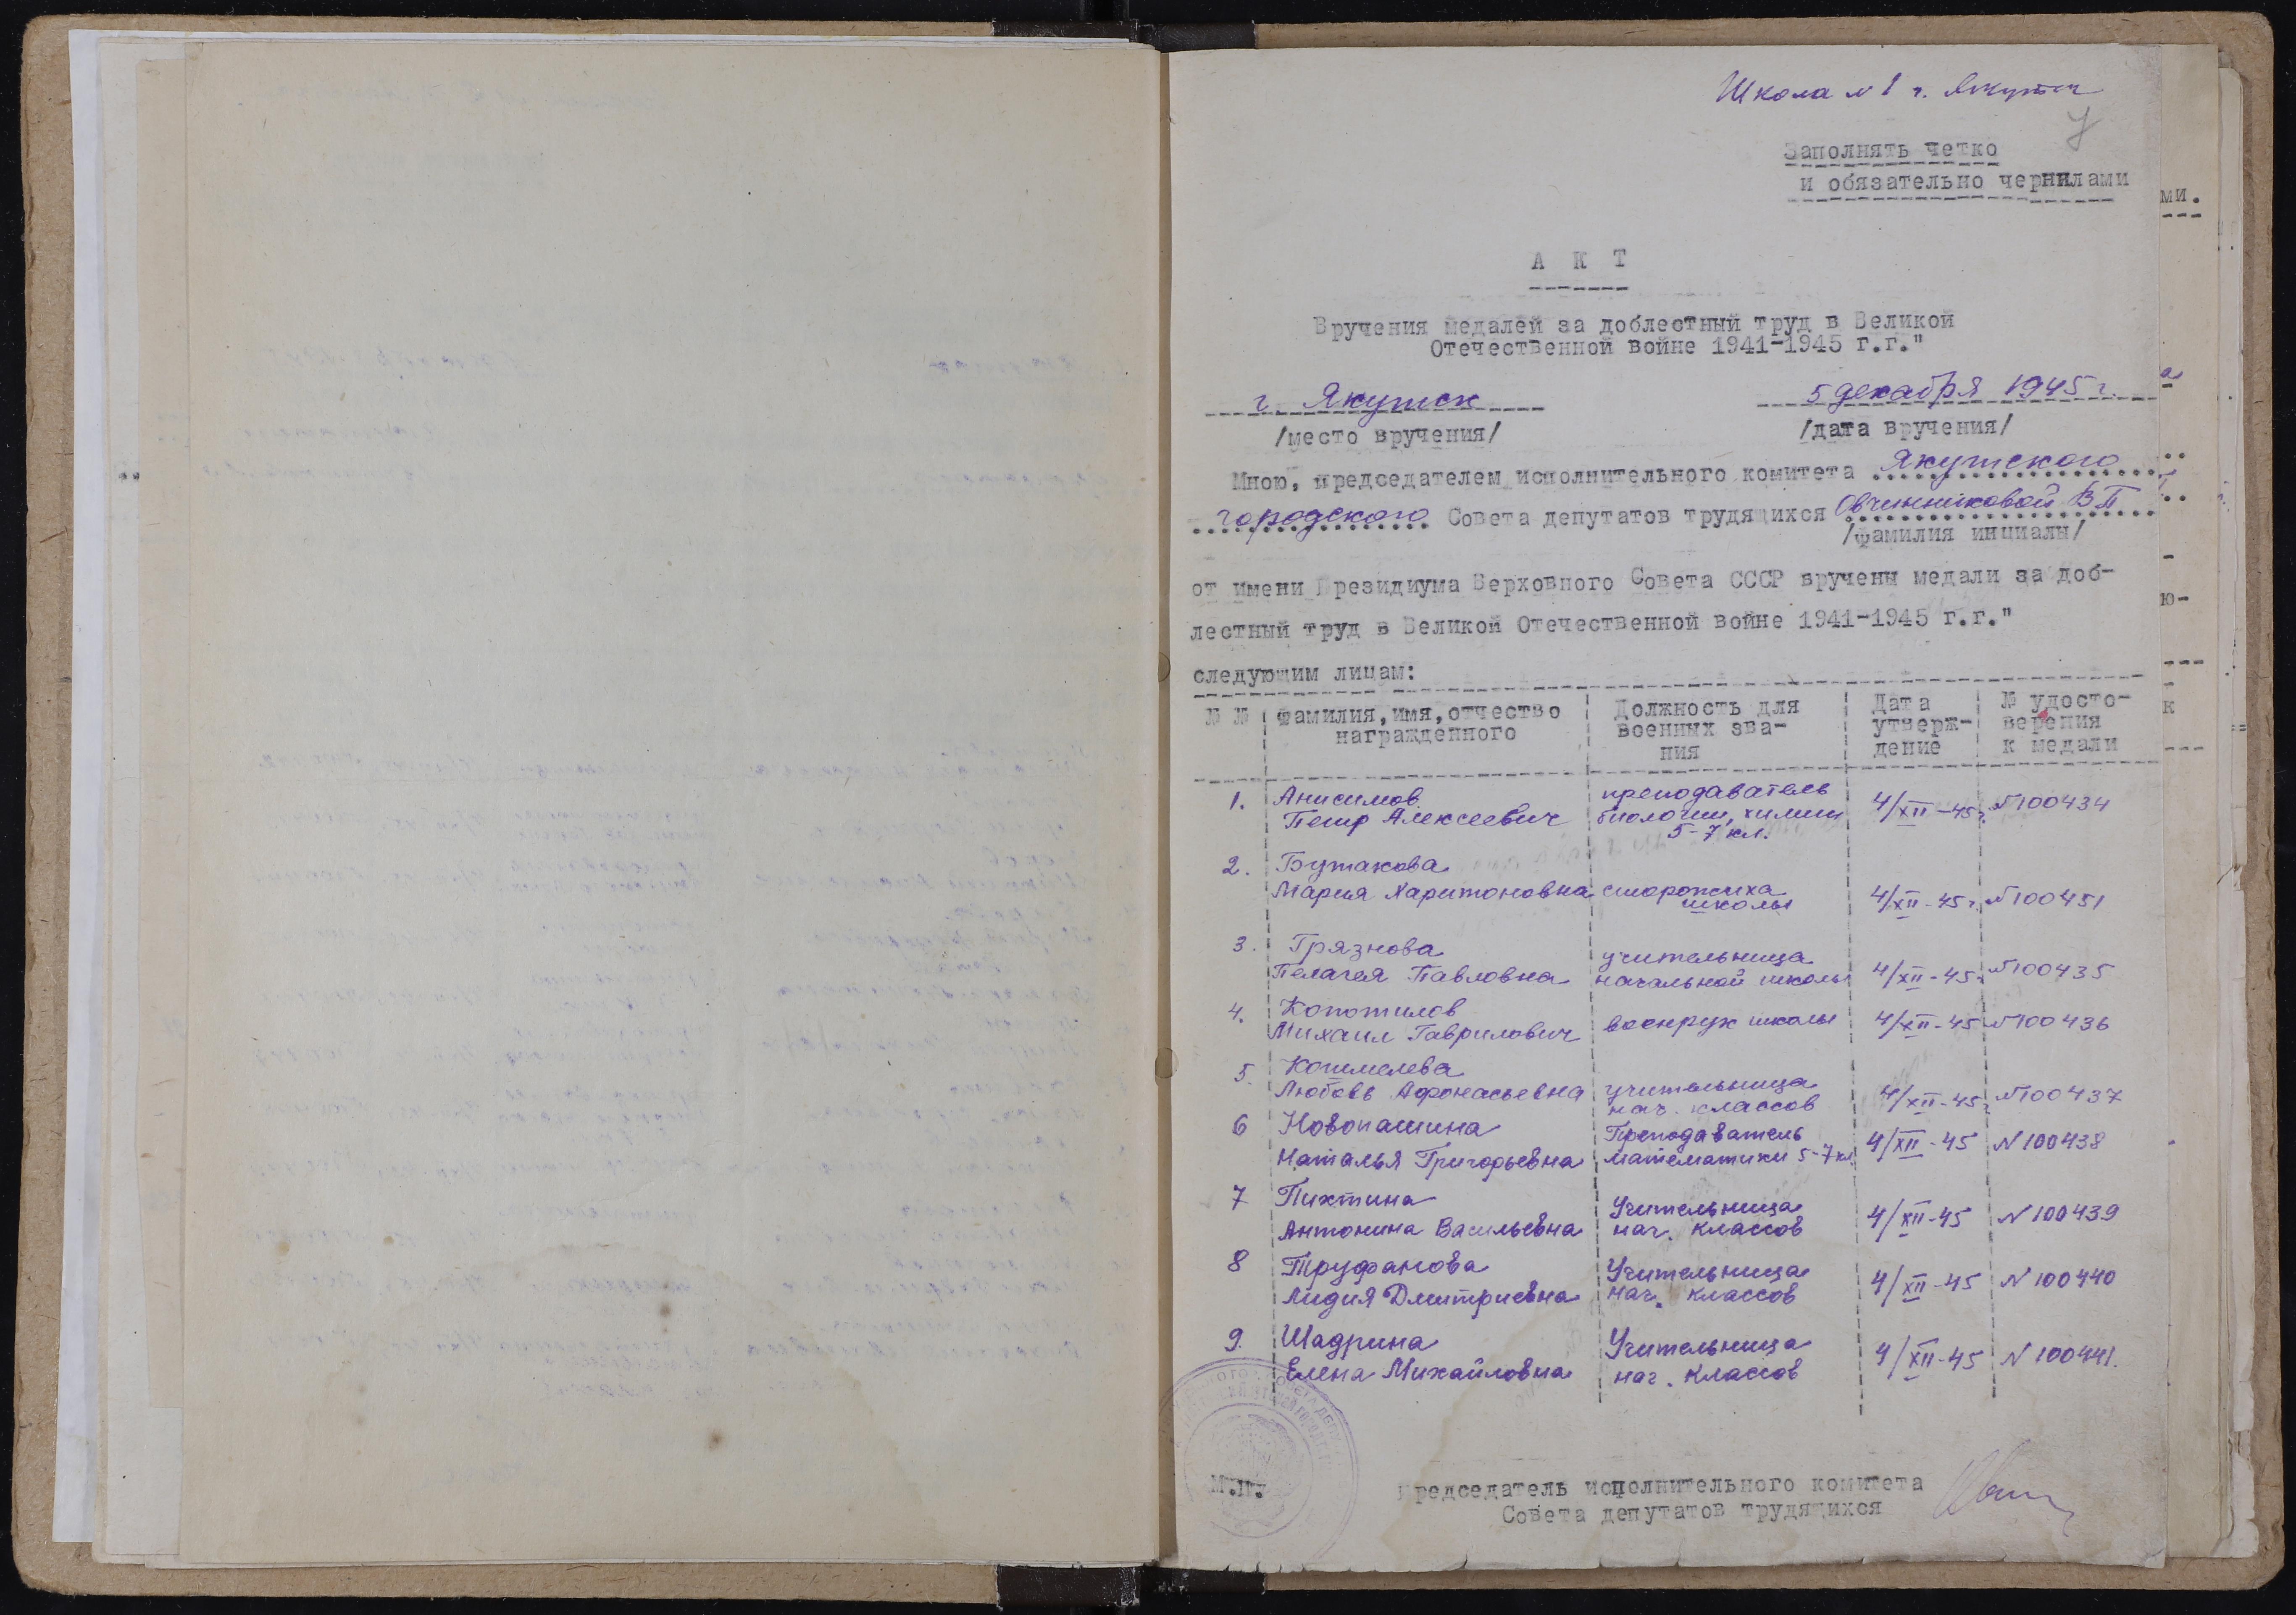 Школа № 1 г. Якутск
7
Заполнять четко
и обязательно чернилами
ми.
А К Т
Вручения медалей за доблестный труд в Великой
Отечественной войне 1941-1945 г.г."
г. Якутск 5 декабря 1945 г.
/место вручения/ /дата вручения/
Мною, председателем исполнительного комитета Якутского
городского Совета депутатов трудящихся Овчинниковой В П
/фамилия инциалы/
от имени Президиума Верховного Совета СССР вручены медали за доб-
лестный труд в Великой Отечественной войне 1941-1945 г.г."
следующим лицам:
№ № фамилия, имя, отчество Должность для Дата № удосто-
награжденного военных зва- утверж- верения
ния дение к медали
1. Анисимов преподаватель 4/XII-45 г. №100434
Петр Алексеевич биологии, химии
5-7 кл.
2. Бутакова
Мария Харитоновна сторожиха 4/XII-45 г. №100451
школы
3. Грязнова учительница
Пелагея Павловна начальной школы 4/XII-45 №100435
4. Копотилов
Михаил Гаврилович военрук школы 4/XII-45 №100436
5. Кошмелева
Любовь Афонасьевна учительница 4/XII-45 г №100437
нач. классов
6 Новопашина Преподаватель 4/XII-45 N 100438
Наталья Григорьевна математики 5-7 кл.
7 Пихтина Учительница 4/XII-45 N 100439
Антонина Васильевна нач. классов
8 Труфанова Учительница 4/XII-45 N 100440
Лидия Дмитриевна нач. классов
9. Шадрина Учительница 4/XII-45 N 100441.
Елена Михайловна нач. классов
М.П. Председатель исполнительного комитета
Совета депутатов трудящихся